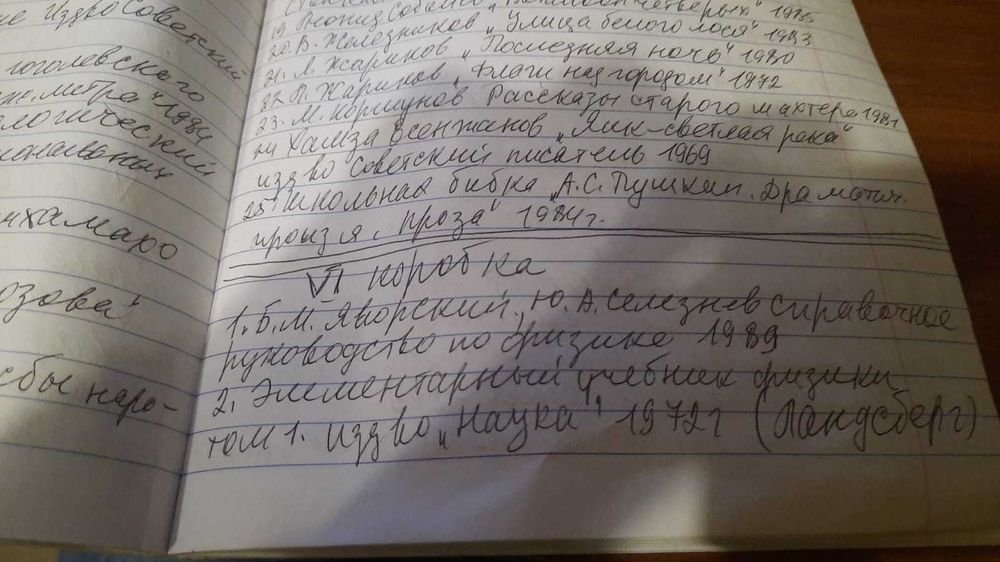 не изд-во Советский
гоголевского
метра" 1984
ологический
нхамаро
озова"
сбы наро-
19 Леонид Соболев " четверых"
20. В. Железников "Улица белого лося" 1983
21. Л. Жариков "Последняя ночь" 1980
22. Л. Жариков "Флаги над городом" 1972
23. М. Коршунов Рассказы старого шахтера 1981
24 Хамза Есенжанов "Яик-светлая река"
изд-во Советский писатель 1969
25 Школьная биб-ка "А.С. Пушкин. Драматич.
произ-я, проза" 1984г.
VI коробка
1. Б. М. Яворский. Ю. А. Селезнев Справочное
руководство по физике 1989
2. Элементарный учебник физики
том 1. изд-во "Наука" 1972г (Ландсберг)